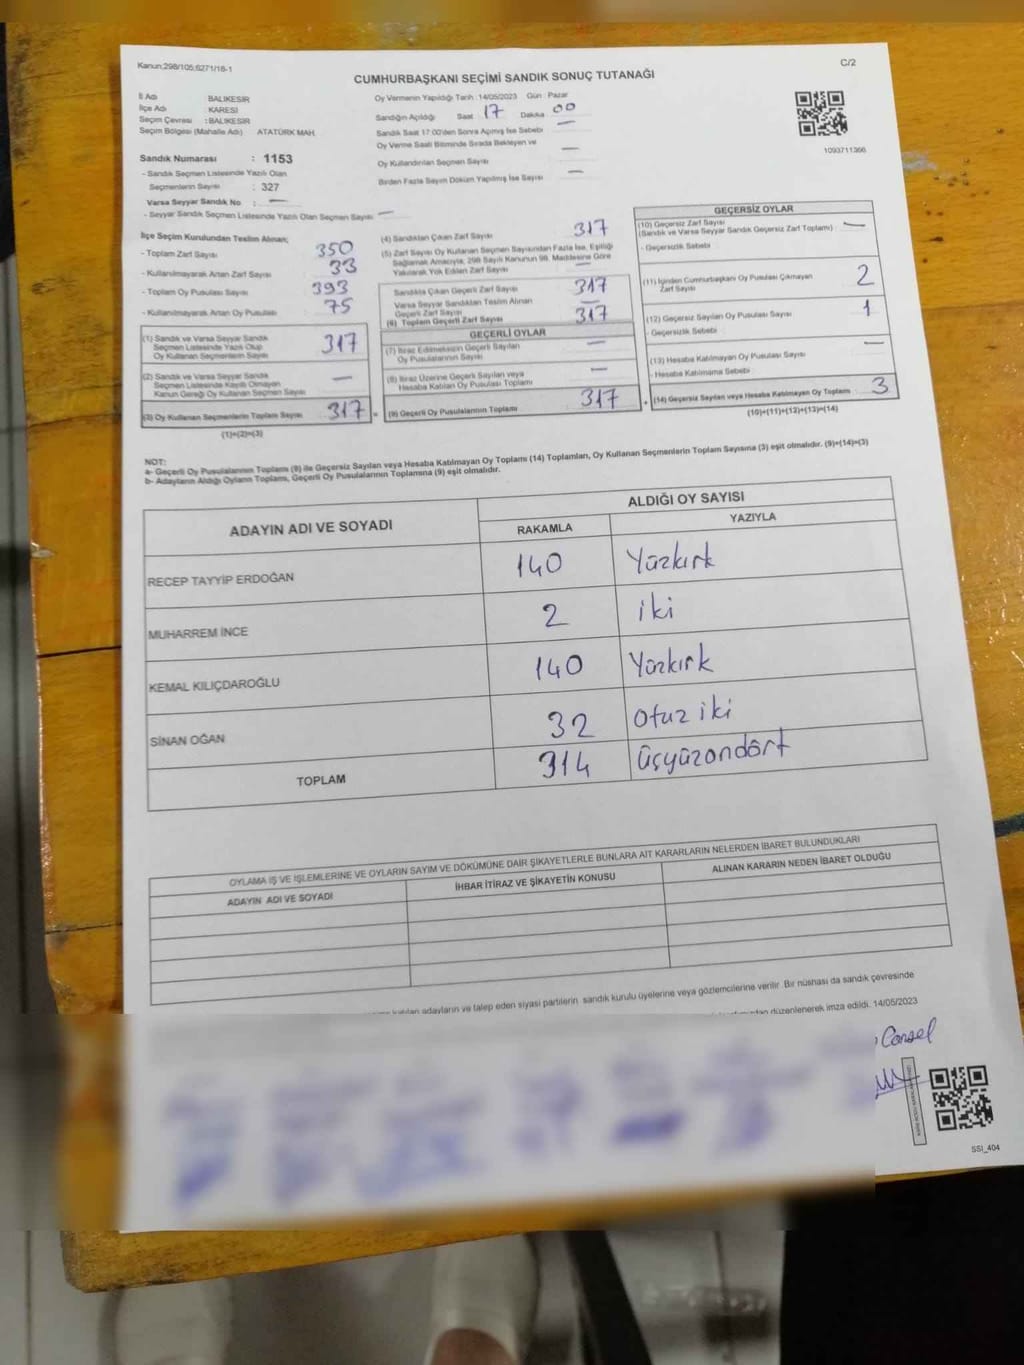 Kanun:298/105;6271/18-1
C/2
CUMHURBAŞKANI SEÇİMİ SANDIK SONUÇ TUTANAĞI
İl Adı : BALIKESİR
İlçe Adı : KARESİ
Seçim Çevresi : BALIKESİR
Seçim Bölgesi (Mahalle Adı) ATATÜRK MAH.
Sandık Numarası : 1153
- Sandık Seçmen Listesinde Yazılı Olan
Seçmenlerin Sayısı : 327
Varsa Seyyar Sandık No : —
- Seyyar Sandık Seçmen Listesinde Yazılı Olan Seçmen Sayısı —
Oy Vermenin Yapıldığı Tarih :14/05/2023 Gün : Pazar
Sandığın Açıldığı Saat 17 Dakika 00
Sandık Saat 17:00'den Sonra Açılmış İse Sebebi —
Oy Verme Saati Bitiminde Sırada Bekleyen ve
Oy Kullandırılan Seçmen Sayısı —
Birden Fazla Sayım Döküm Yapılmış İse Sayısı —
1093711366
İlçe Seçim Kurulundan Teslim Alınan;
- Toplam Zarf Sayısı 350
- Kullanılmayarak Artan Zarf Sayısı 33
- Toplam Oy Pusulası Sayısı 393
- Kullanılmayarak Artan Oy Pusulası 75
(1) Sandık ve Varsa Seyyar Sandık
Seçmen Listesinde Yazılı Olup
Oy Kullanan Seçmenlerin Sayısı 317
(2) Sandık ve Varsa Seyyar Sandık
Seçmen Listesinde Kayıtlı Olmayan
Kanun Gereği Oy Kullanan Seçmen Sayısı —
(3) Oy Kullanan Seçmenlerin Toplam Sayısı 317 =
(1)+(2)=(3)
(4) Sandıktan Çıkan Zarf Sayısı 317
(5) Zarf Sayısı Oy Kullanan Seçmen Sayısından Fazla İse, Eşitliği
Sağlamak Amacıyla, 298 Sayılı Kanunun 98. Maddesine Göre
Yakılarak Yok Edilen Zarf Sayısı —
Sandıkta Çıkan Geçerli Zarf Sayısı 317
Varsa Seyyar Sandıktan Teslim Alınan
Geçerli Zarf Sayısı —
(6) Toplam Geçerli Zarf Sayısı 317
GEÇERLİ OYLAR
(7) İtiraz Edilmeksizin Geçerli Sayılan
Oy Pusulalarının Sayısı —
(8) İtiraz Üzerine Geçerli Sayılan veya
Hesaba Katılan Oy Pusulası Toplamı —
(9) Geçerli Oy Pusulalarının Toplamı 317 +
GEÇERSİZ OYLAR
(10) Geçersiz Zarf Sayısı
(Sandık ve Varsa Seyyar Sandık Geçersiz Zarf Toplamı) : —
- Geçersizlik Sebebi
(11) İçinden Cumhurbaşkanı Oy Pusulası Çıkmayan
Zarf Sayısı 2
(12) Geçersiz Sayılan Oy Pusulası Sayısı 1
- Geçersizlik Sebebi
(13) Hesaba Katılmayan Oy Pusulası Sayısı —
- Hesaba Katılmama Sebebi
(14) Geçersiz Sayılan veya Hesaba Katılmayan Oy Toplamı 3
(10)+(11)+(12)+(13)=(14)
NOT:
a- Geçerli Oy Pusulalarının Toplamı (9) ile Geçersiz Sayılan veya Hesaba Katılmayan Oy Toplamı (14) Toplamları, Oy Kullanan Seçmenlerin Toplam Sayısına (3) eşit olmalıdır. (9)+(14)=(3)
b- Adayların Aldığı Oyların Toplamı, Geçerli Oy Pusulalarının Toplamına (9) eşit olmalıdır.
ADAYIN ADI VE SOYADI
ALDIĞI OY SAYISI
RAKAMLA YAZIYLA
RECEP TAYYİP ERDOĞAN 140 Yüzkırk
MUHARREM İNCE 2 iki
KEMAL KILIÇDAROĞLU 140 Yüzkırk
SİNAN OĞAN 32 Otuz iki
TOPLAM 314 üçyüzondört
OYLAMA İŞ VE İŞLEMLERİNE VE OYLARIN SAYIM VE DÖKÜMÜNE DAİR ŞİKAYETLERLE BUNLARA AİT KARARLARIN NELERDEN İBARET BULUNDUKLARI
ADAYIN ADI VE SOYADI İHBAR İTİRAZ VE ŞİKAYETİN KONUSU ALINAN KARARIN NEDEN İBARET OLDUĞU
katılan adayların ve talep eden siyasi partilerin sandık kurulu üyelerine veya gözlemcilerine verilir. Bir nüshası da sandık çevresinde
düzenlenerek imza edildi. 14/05/2023
SSI_404